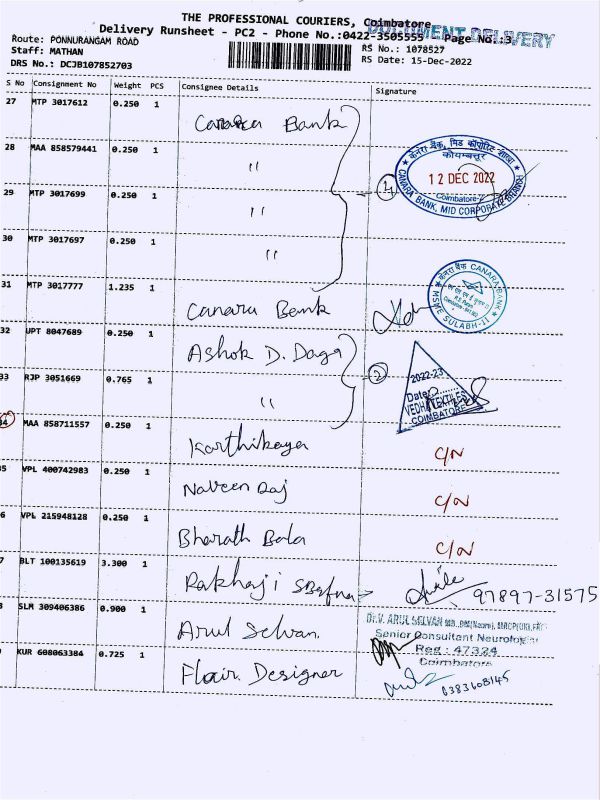 THE PROFESSIONAL COURIERS, Coimbatore
Delivery Runsheet - PC2 - Phone No.:0422-3505555 Page No.:3
DOCUMENT DELIVERY
Route: PONNURANGAM ROAD
RS No.: 1078527
Staff: MATHAN
RS Date: 15-Dec-2022
DRS No.: DCJB107852703
S No Consignment No Weight PCS Consignee Details Signature
27 MTP 3017612 0.250 1 Canara Bank
28 MAA 858579441 0.250 1 "
केनरा बैंक, मिड कॉर्पोरेट शाखा
कोयम्बत्तूर
12 DEC 2022
Coimbatore-2
CANARA BANK, MID CORPORATE BRANCH
29 MTP 3017699 0.250 1 " 4
30 MTP 3017697 0.250 1 "
31 MTP 3017777 1.235 1 Canara Bank
केनरा बैंक CANARA BANK
MSME SULABH-II
32 UPT 8047689 0.250 1 Ashok D. Daga
33 RJP 3051669 0.765 1 " 2
2022-23
Date:
VEDHA TEXTILES
COIMBATORE
34 MAA 858711557 0.250 1 Karthikeya C/N
5 VPL 400742983 0.250 1 Naveen Raj C/N
6 VPL 215948128 0.250 1 Bharath Bala C/N
7 BLT 100135619 3.300 1 Rakhaji SBafna 97897-31575
8 SLM 309406386 0.900 1 Arul Selvan.
Dr.V. ARUL SELVAN
Senior Consultant Neurologist
Reg : 47324
Coimbatore
KUR 608063384 0.725 1 Flair Designer 6383608145